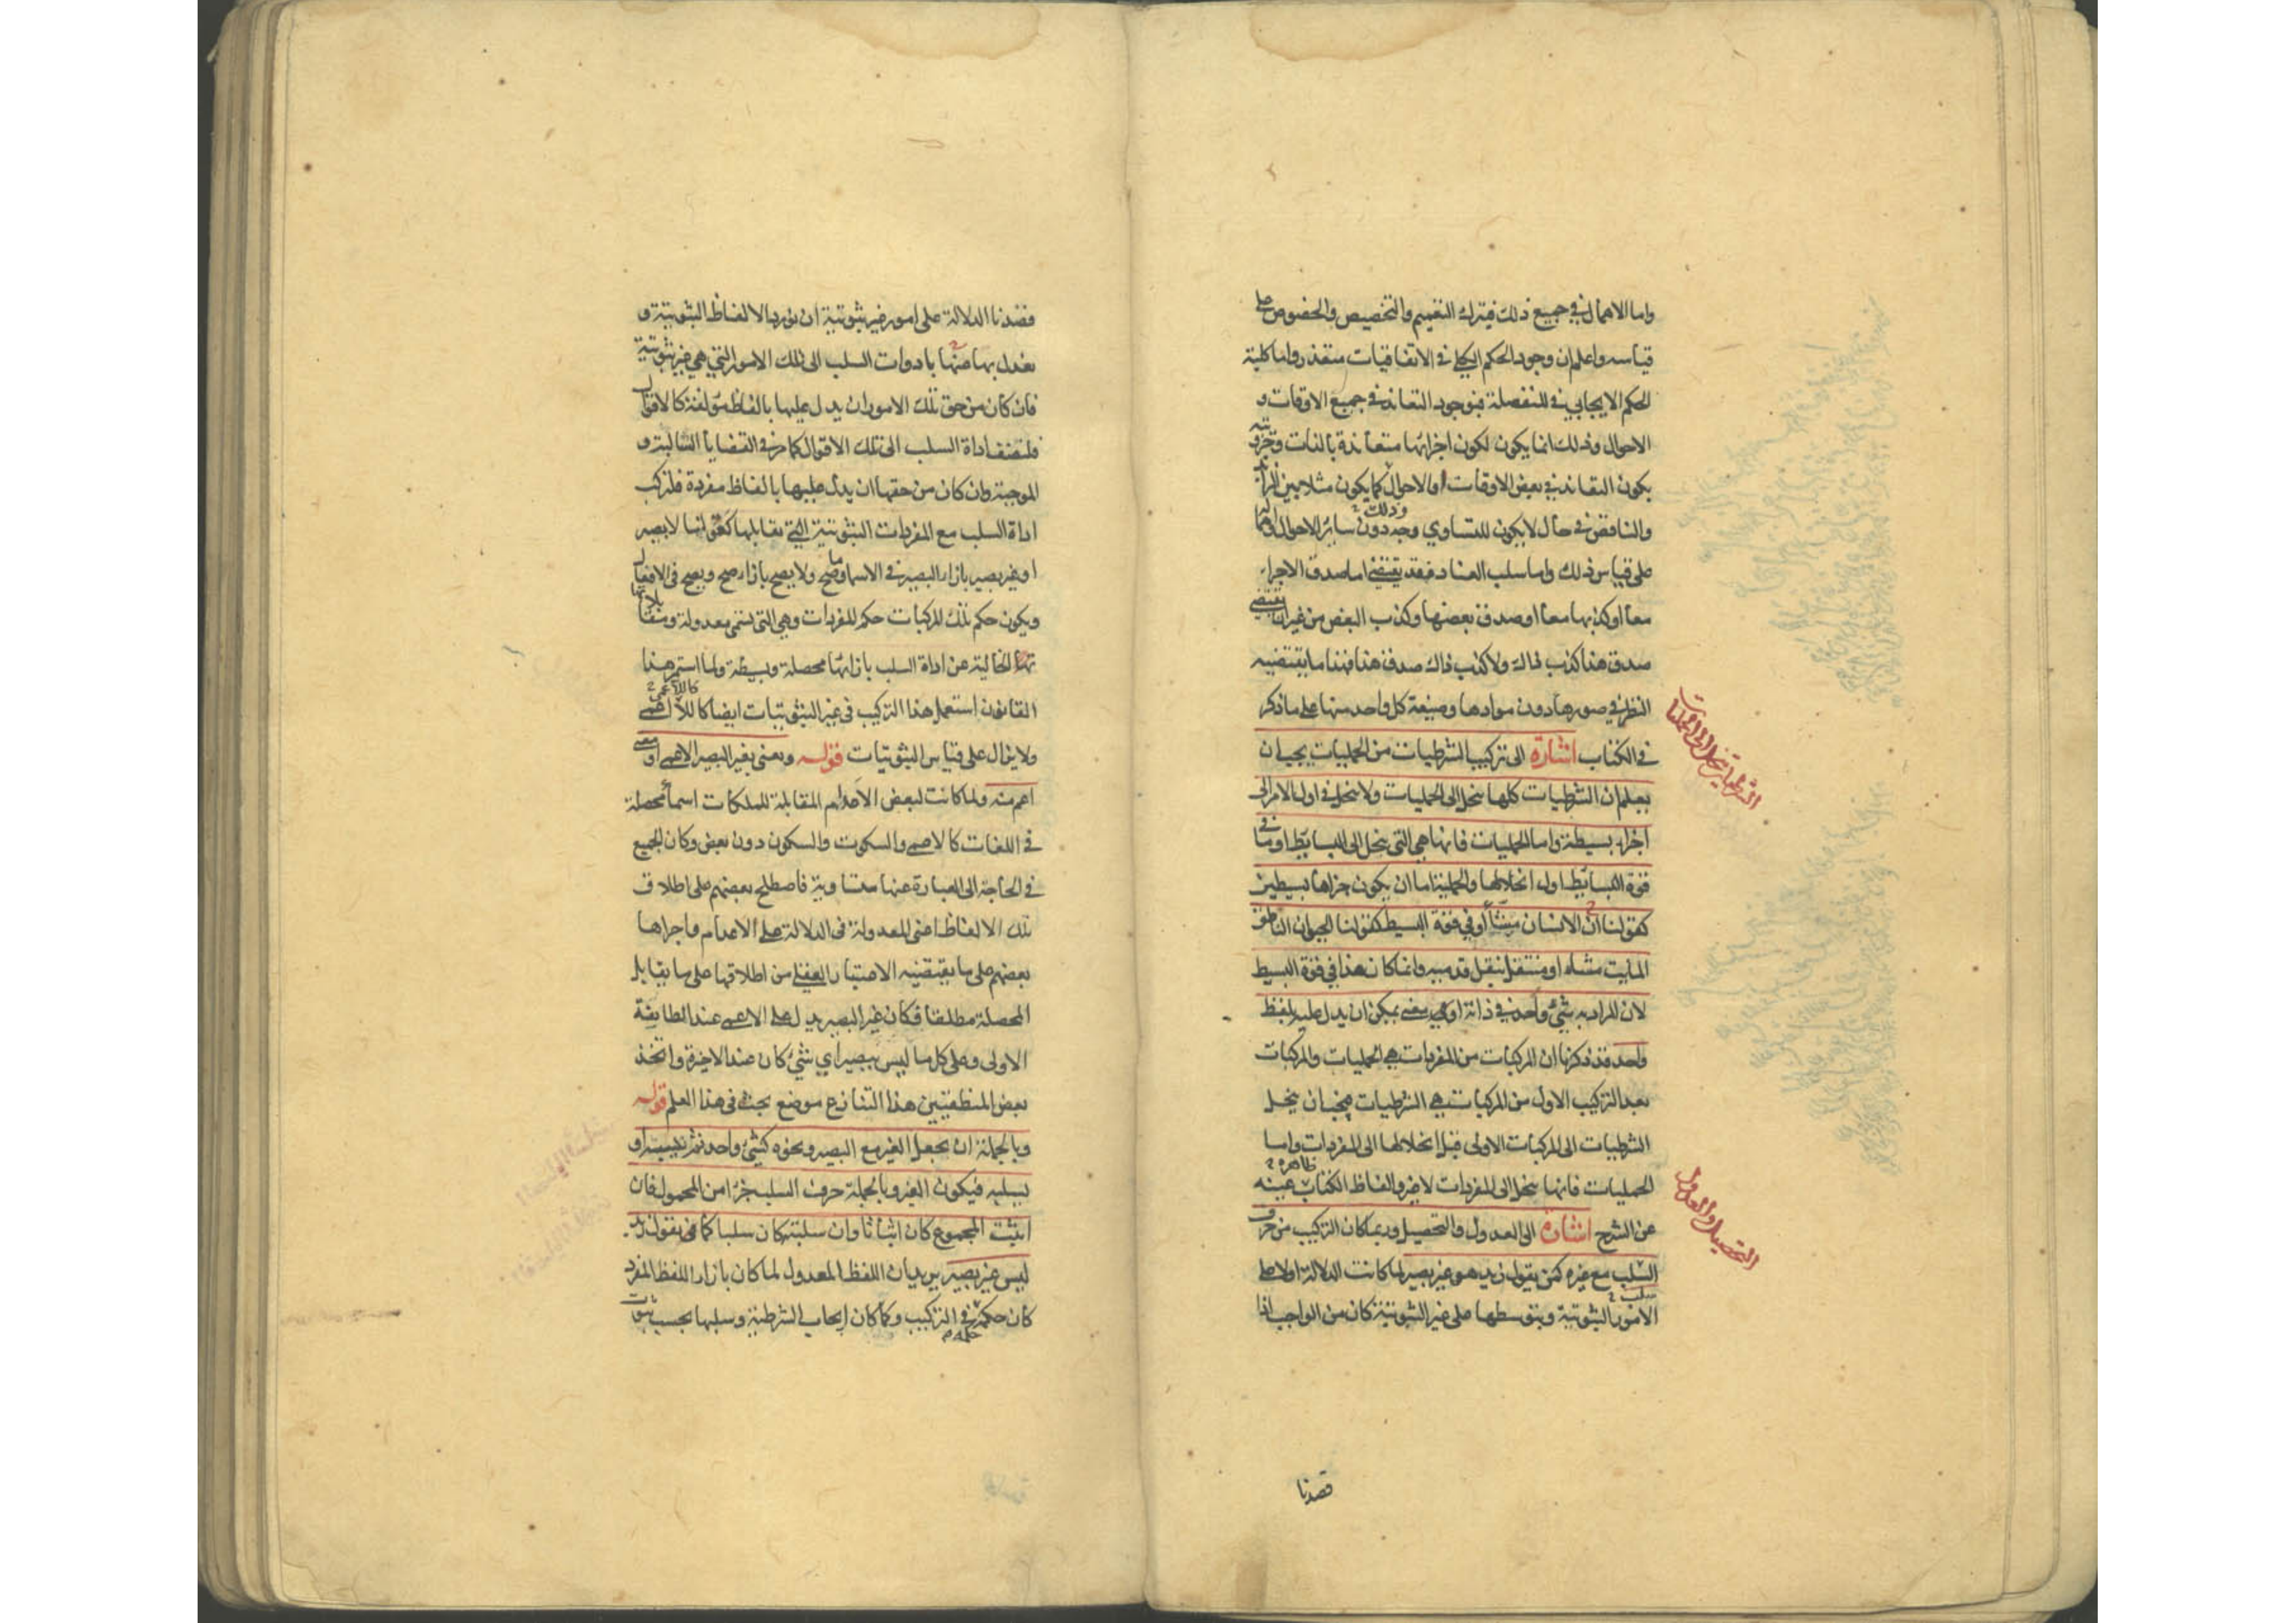 واما الاهمال في جميع ذلك فبترك التعميم والتخصيص والخصوص على
قياسه واعلم ان وجود الحكم الكلي في الاتفاقيات متعذر واما كلية
الحكم الايجابي في المنفصلة فبوجود التعاند في جميع الاوقات و
الاحوال وذلك انما يكون لكون اجزائها متعاندة بالذات وجزئيته
بكون التعاند في بعض الاوقات او الاحوال كما يكون مثلا بين الزائد
والناقص في حال لا يكون للتساوي وجه دون سائر الاحوال وذلك
على قياس ذلك واما سلب العناد فقد يقتضي اما صدق الاجزاء
معا او كذبها معا او صدق بعضها وكذب البعض من غير ان يقتضي
صدق هذا كذب ذاك ولا كذب ذاك صدق هذا فهذا ما يقتضيه
النظر في صورها دون موادها وصيغة كل واحد منها على ما ذكر
في الكتاب اشارة الى تركيب الشرطيات من الحمليات يجب ان
يعلم ان الشرطيات كلها تنحل الى الحمليات ولا تنحل في اول الامر الى
اجزاء بسيطة واما الحمليات فانها هي التي تنحل الى البسايط او ما في
قوة البسايط اول انحلالها والحملية اما ان يكون جزاها بسيطين
كقولنا ان الانسان مشاء او في قوة البسيط كقولنا الحيوان الناطق
المايت مشاء او منتقل بنقل قدميه وانما كان هذا في قوة البسيط
لان المراد به شيء واحد في ذاته او معنى يمكن ان يدل عليه بلفظ
واحد قد ذكرنا ان المركبات من المفردات هي الحمليات والمركبات
بعد التركيب الاول من المركبات هي الشرطيات فيجب ان ينحل
الشرطيات الى المركبات الاولى قبل انحلالها الى المفردات واما
الحمليات فانها تنحل الى المفردات لا غير والفاظ الكتاب ظاهرة غنية
عن الشرح اشارة الى العدول والتحصيل وربما كان التركيب من حرف
السلب مع غيره كمن يقول زيد هو غير بصير لما كانت الدلالة اولا على
الامور الثبوتية وبتوسطها على غير الثبوتية كان من الواجب اذا
قصدنا
الشرطيات تنحل الى الحمليات
التحصيل والعدول
قصدنا الدلالة على امور غير ثبوتية ان نورد الالفاظ الثبوتية و
نعدل بها عنها بادوات السلب الى تلك الامور التي هي غير ثبوتية
فان كان من حق تلك الامور ان يدل عليها بالفاظ مؤلفة كالاقوال
فلتضف اداة السلب الى تلك الاقوال كما مر في القضايا السالبة و
الموجبة وان كان من حقها ان يدل عليها بالفاظ مفردة فلتركب
اداة السلب مع المفردات الثبوتية التي تقابلها كقولنا لا بصير
او غير بصير بازاء البصير في الاسماء وما صح ولا يصح بازاء صح ويصح في الافعال
ويكون حكم تلك المركبات حكم المفردات وهي التي تسمى معدولة ومقابلاتها
الخالية عن اداة السلب بازائها محصلة وبسيطة ولما استمر هذا
القانون استعمل هذا التركيب في غير الثبوتيات ايضا كاللا اعمى
ولا يزال على قياس الثبوتيات قوله ونعني بغير البصير الاعمى او معنى
اعم منه ولما كانت لبعض الاعدام المقابلة للملكات اسماء محصلة
في اللغات كالاعمى والسكوت والسكون دون بعض وكان الجميع
في الحاجة الى العبارة عنها متساوية فاصطلح بعضهم على اطلاق
تلك الالفاظ اعني المعدولة في الدلالة على الاعدام واجراها
بعضهم على ما يقتضيه الاعتبار العقلي من اطلاقها على ما يقابل
المحصلة مطلقا فكان غير البصير يدل على الاعمى عند الطايفة
الاولى وعلى كل ما ليس ببصير اي شيء كان عند الاخيرة واتخذ
بعض المنطقيين هذا التنازع موضع بحث في هذا العلم قوله
وبالجملة ان يجعل الغير مع البصير ونحوه كشيء واحد ثم تثبته او
تسلبه فيكون الغير وبالجملة حرف السلب جزءا من المحمول فان
اثبت المجموع كان اثباتا وان سلبته كان سلبا كما في يقول زيد
ليس غير بصير يريد ان اللفظ المعدول لما كان بازاء اللفظ المفرد
كان حكمه حكمه في التركيب وكما كان ايجاب الشرطية وسلبها بحسب ثبوت